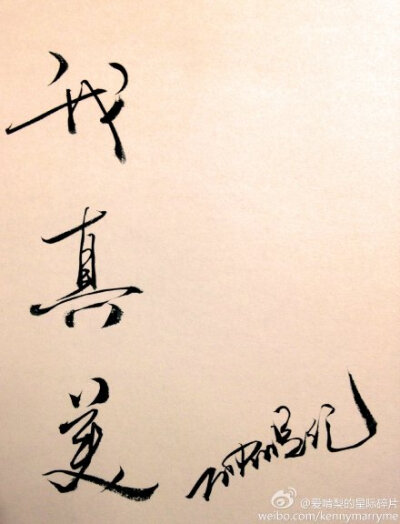 我真美
@爱啃梨的星际碎片
weibo.com/kennymarryme